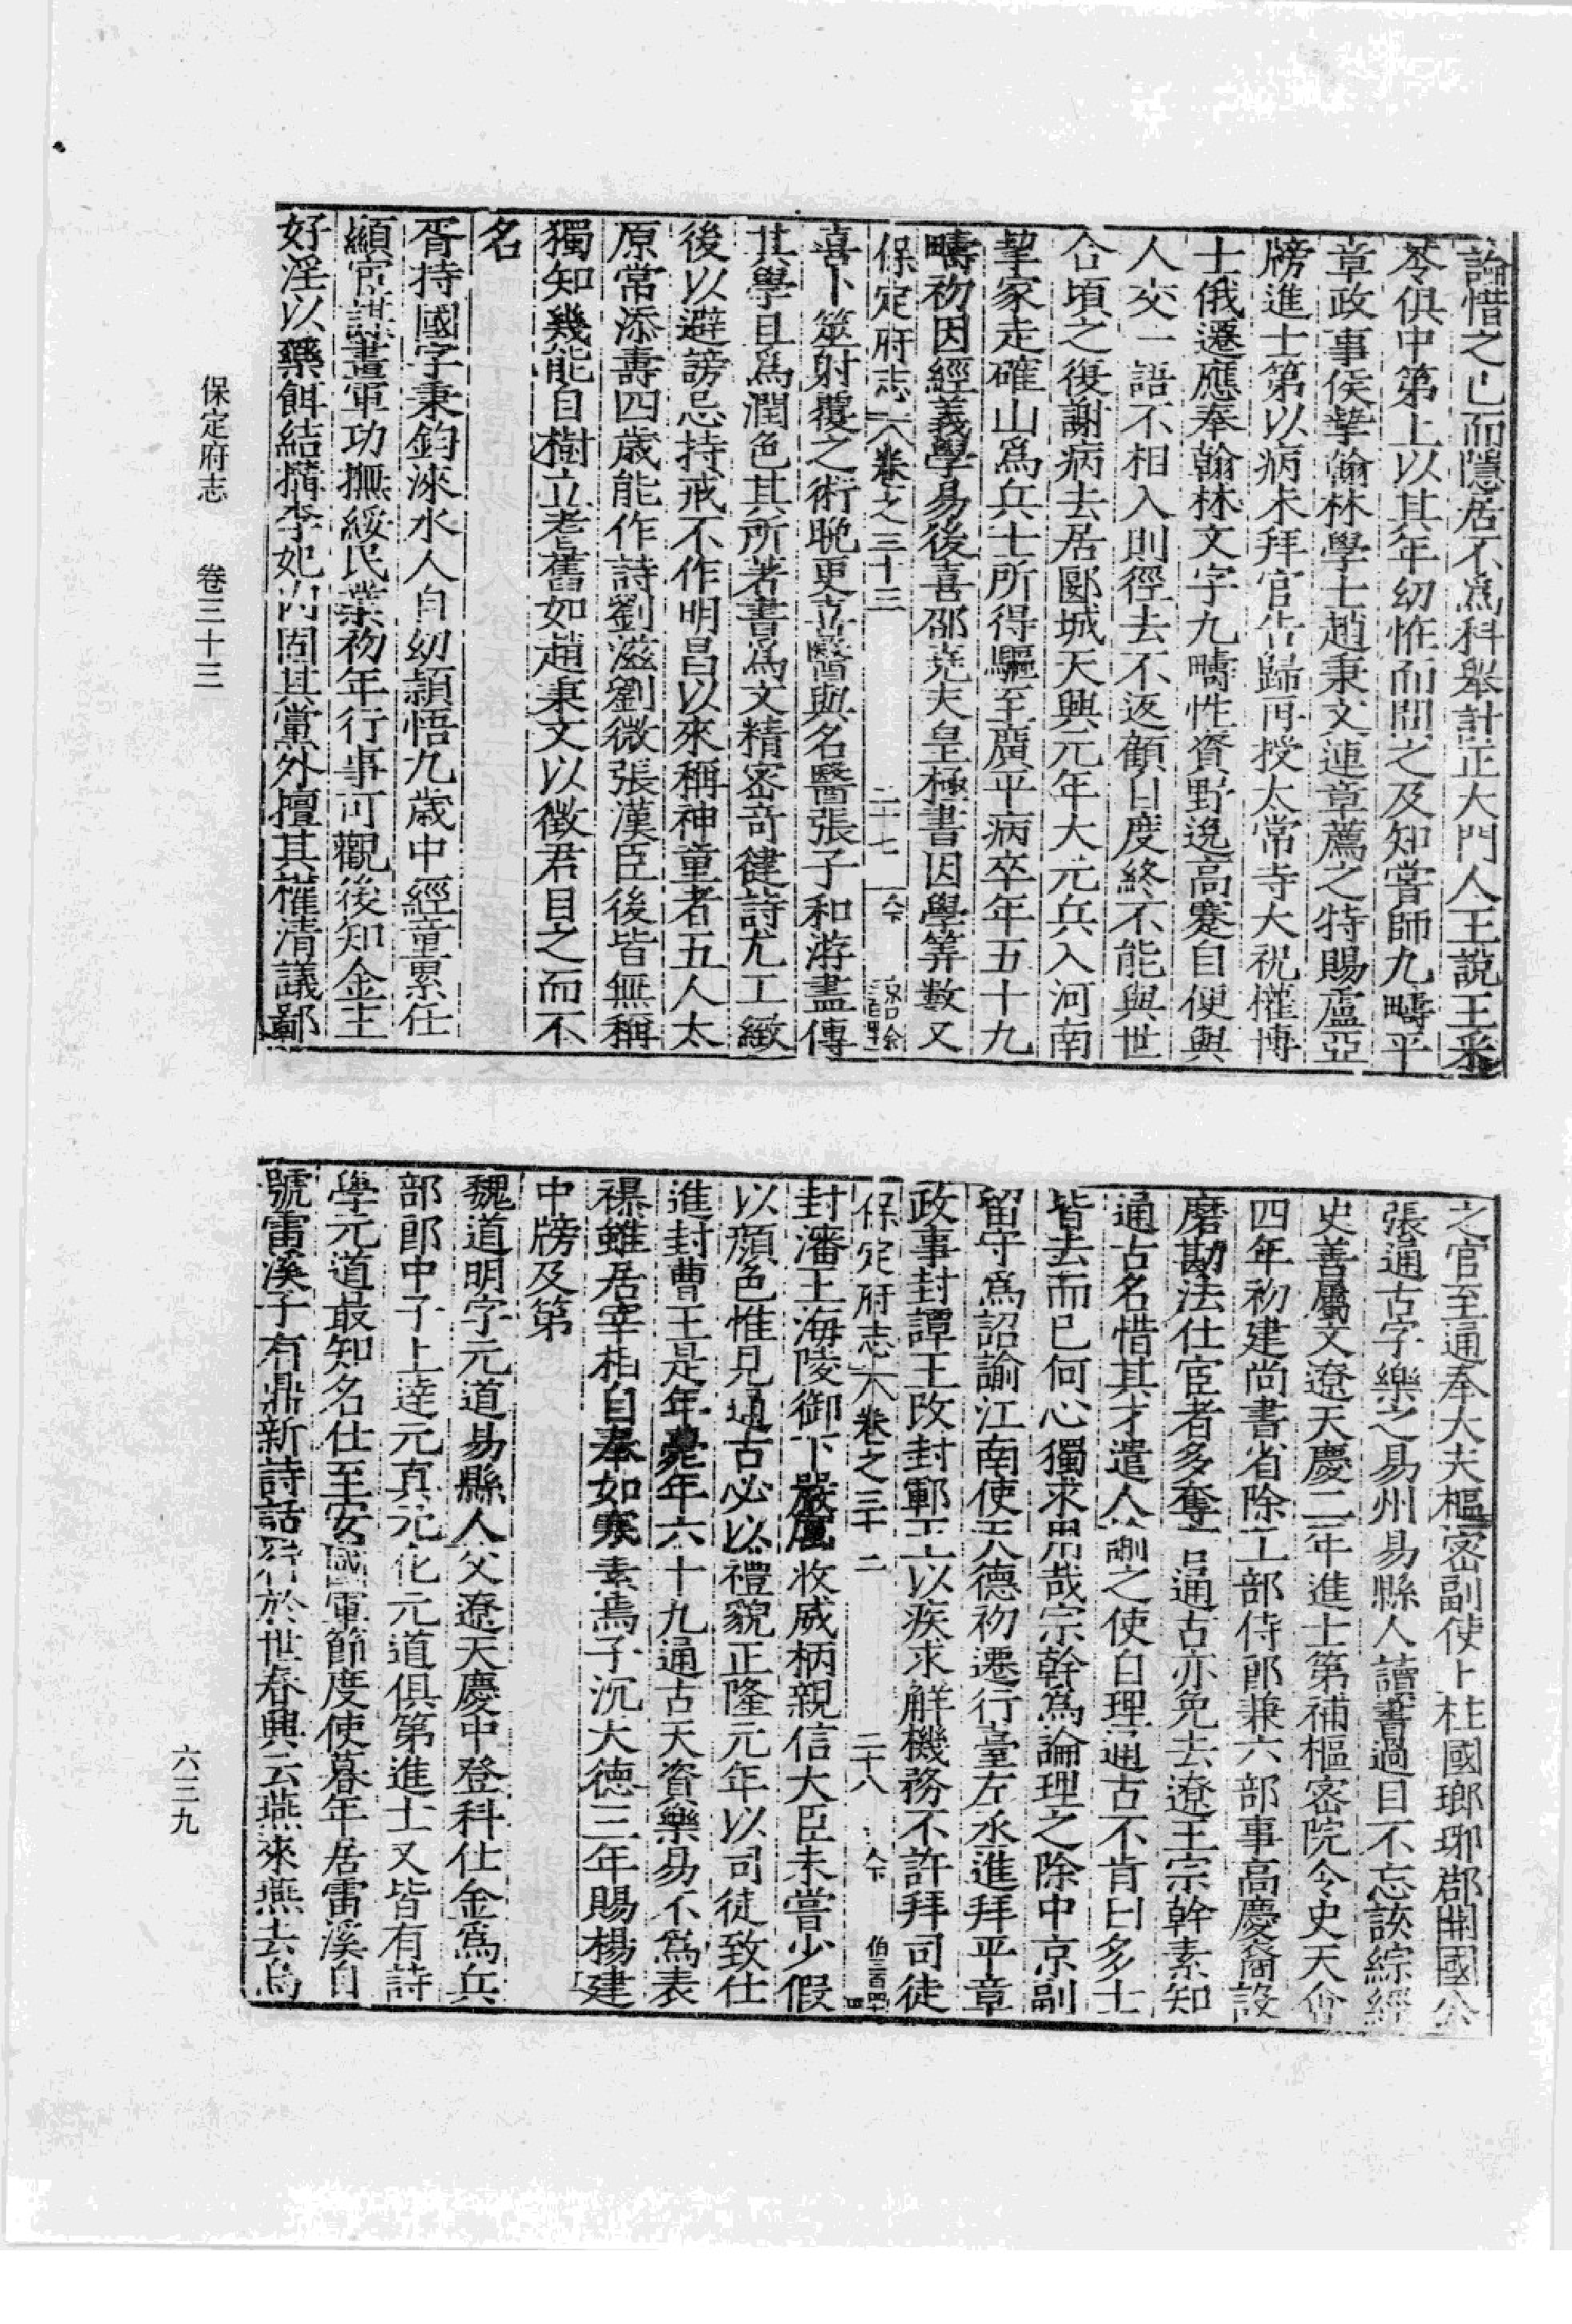 論惜之已而隱居不爲科舉計正大門人王說王采
苓俱中第上以其年幼怪而問之及知嘗師九疇平
章政事侯摯翰林學士趙秉文連章薦之特賜盧亞
牓進士第以病未拜官告歸再授太常寺大祝權博
士俄遷應奉翰林文字九疇性資野逸高蹇自便與
人交一語不相入則徑去不返顧自度終不能與世
合頃之復謝病去居郾城天興元年大元兵入河南
挈家走確山爲兵士所得驅至廣平病卒年五十九
疇初因經義學易後喜邵堯夫皇極書因學筭數又
保定府志 卷之三十三 二十七
喜卜筮射覆之術晩更立醫與名醫張子和游盡傳
其學且爲潤色其所著書爲文精密奇健詩尤工緻
後以避謗忌持戒不作明昌以來稱神童者五人太
原常添壽四歲能作詩劉滋劉微張漢臣後皆無稱
獨知幾能自樹立耆舊如趙秉文以徵君目之而不
名
胥持國字秉鈞淶水人自幼頴悟九歲中經童累仕
顯宦謀畫軍功撫綏民業初年行事可觀後知金主
好淫以藥餌結搆李妃内固其黨外擅其權清議鄙
之官至通奉大夫樞密副使上柱國瑯琊郡開國公
張通古字樂之易州易縣人讀書過目不忘該綜經
史善屬文遼天慶二年進士第補樞密院令史天會
四年初建尚書省除工部侍郎兼六部事高慶裔設
磨勘法仕宦者多奪官通古亦免去遼王宗幹素知
通古名惜其才遣人諭之使自理通古不肯曰多士
皆去而已何心獨求用哉宗幹爲論理之除中京副
留守爲詔諭江南使天德初遷行臺左丞進拜平章
政事封譚王改封鄆王以疾求解機務不許拜司徒
保定府志 卷之三十 二 二十八
封瀋王海陵御下嚴厲收威柄親信大臣未嘗少假
以顏色惟見通古必以禮貌正隆元年以司徒致仕
進封曹王是年薨年六十九通古天資樂易不爲表
襮雖居宰相自奉如寒素焉子沉大德三年賜楊建
中牓及第
魏道明字元道易縣人父遼天慶中登科仕金爲兵
部郎中子上達元真元化元道俱第進士又皆有詩
學元道最知名仕至安國軍節度使暮年居雷溪自
號雷溪子有鼎新詩話行於世春興云燕來燕去烏
保定府志 卷三十三
六三九